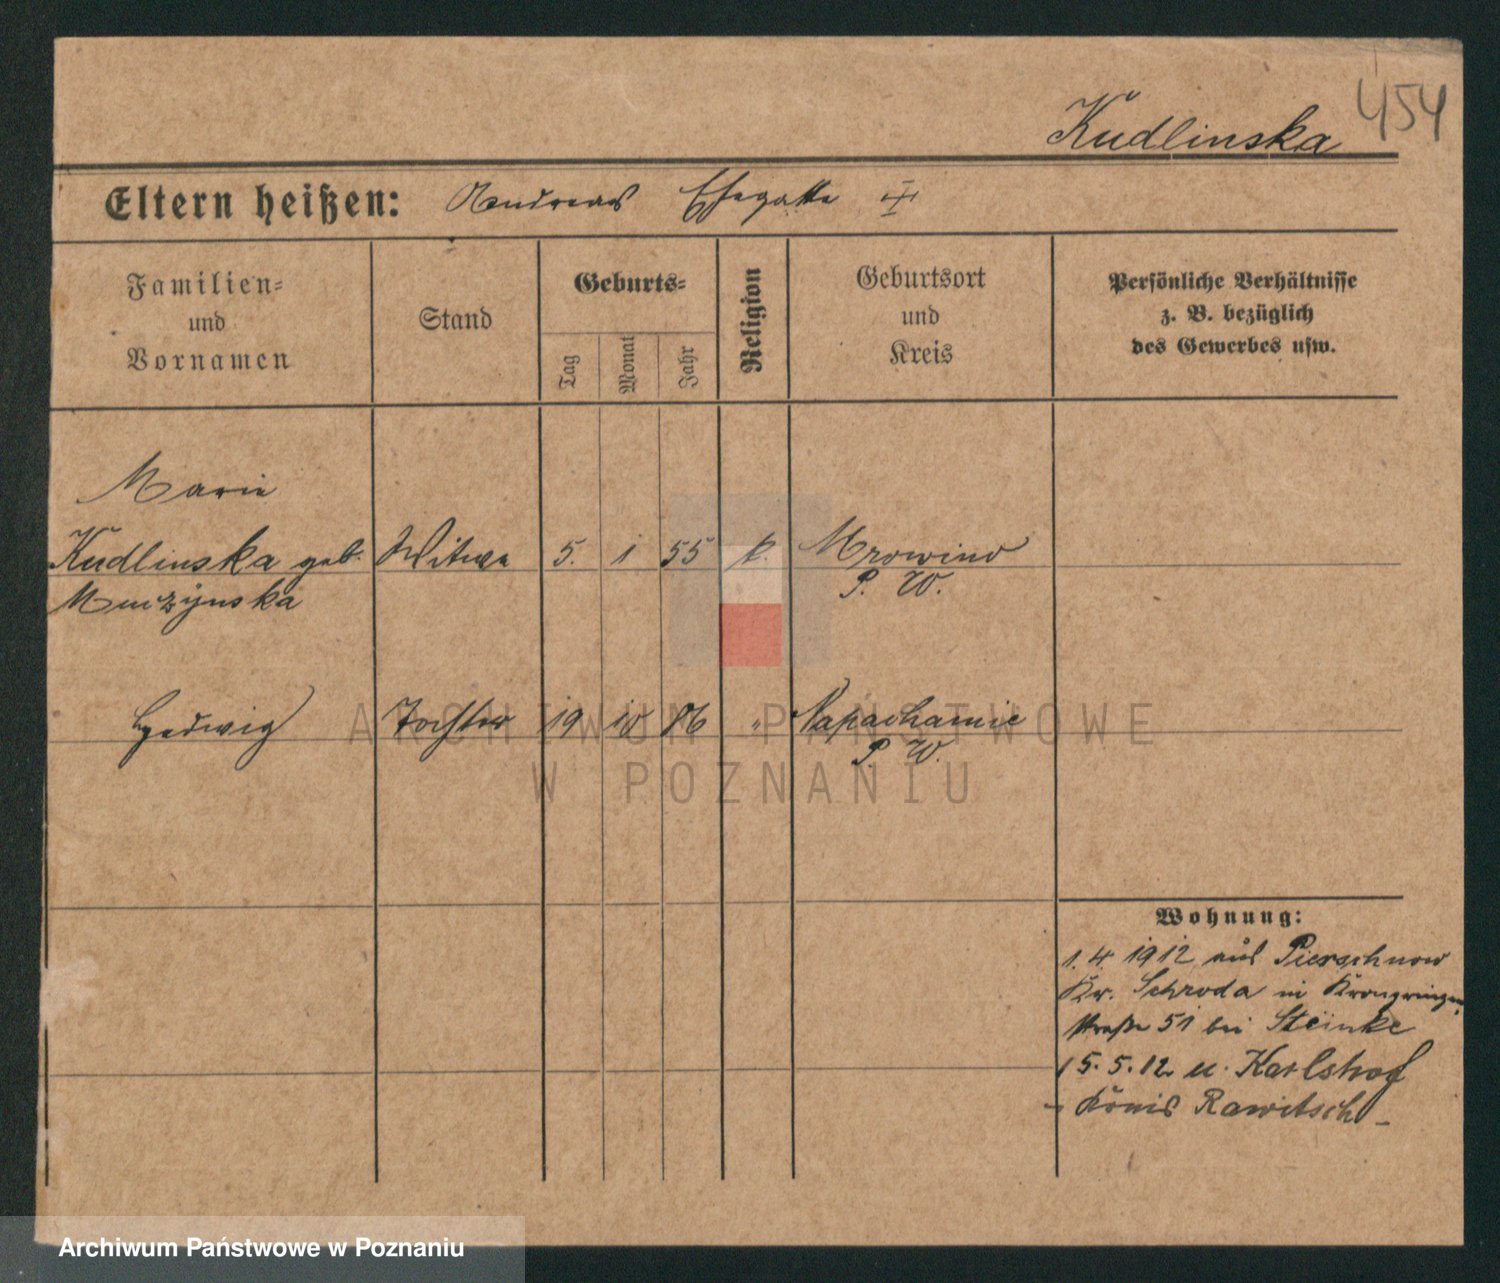 454
Kudlinska
Eltern heißen: Andreas Ehegatte
Familien=
und
Vornamen
Stand
Geburts=
Tag
Monat
Jahr
Religion
Geburtsort
und
Kreis
Persönliche Verhältnisse
z. B. bezüglich
des Gewerbes usw.
Marie
Kudlinska geb. Witwe 5. 1 55 k. Mrowino
Muczynska P. W.
Hedwig Tochter 19 10 86 " Napachanie
P. W.
Wohnung:
1.4. 1912 aus Pierschnow
Kr. Schroda in Kronprinzen
straße 51 bei Steinke
15.5.12 u. Karlshof
Kreis Rawitsch
ARCHIWUM PAŃSTWOWE
W POZNANIU
Archiwum Państwowe w Poznaniu